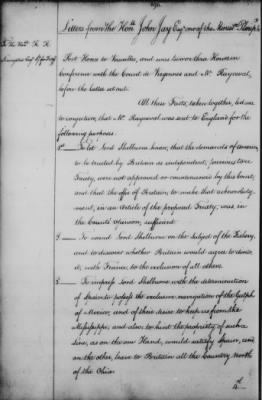 Letters from the Honble John Jay Esqr one of the
To the Honble R. R.
Livingston Esqr
Post Horse to Versailles, and was two or three Hours in
Conference with the Count de Vergennes and Mr. Rayneval,
before the latter set out.
All these Facts, taken together, led me
to conjecture, that Mr. Rayneval was sent to England for the
following purposes.
1st To let Lord Shelburne know, that the demands of America,
to be treated by Britain as independent, previous to a
Treaty, were not approved or countenanced by this Court,
and that the offer of Britain to make that acknowledg-
ment, in an Article of the proposed Treaty, was, in
the Count's opinion, sufficient.
2 To sound Lord Shelburne on the Subject of the Fishery,
and to discover whether Britain would agree to divide
it, with France, to the exclusion of all others.
3 To impress Lord Shelburne with the determination
of Spain to possess the exclusive navigation of the Gulph
of Mexico, and of their desire to keep us from the
Mississippi; and also to hint the propriety of such a
line, as on the one Hand, would satisfy Spain, and
on the other, leave to Britain all the Country north
of the Ohio.